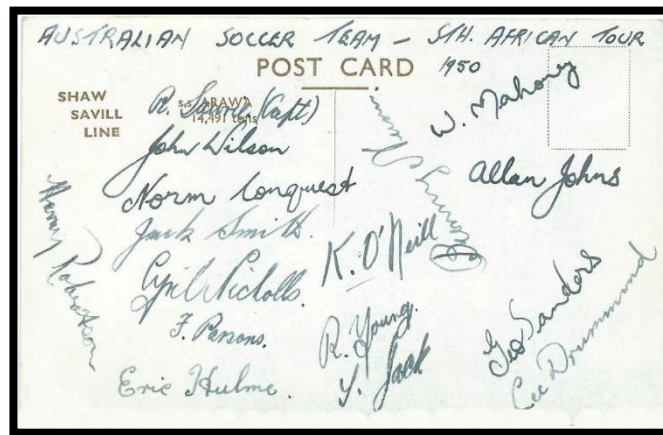 AUSTRALIAN SOCCER TEAM – STH. AFRICAN TOUR
1950
POST CARD
SHAW
SAVILL
LINE
s.s. ARAWA
14,491 tons
R. (Capt)
John Wilson
Norm Conquest
Jack Smith.
Cyril Nicholls.
F. Parsons.
Eric Hulme.
Harry Robertson
K. O'Neill
R. Young.
Y. Jack
W. Mahoney
Allan Johns
Geo Sanders
Cec Drummond